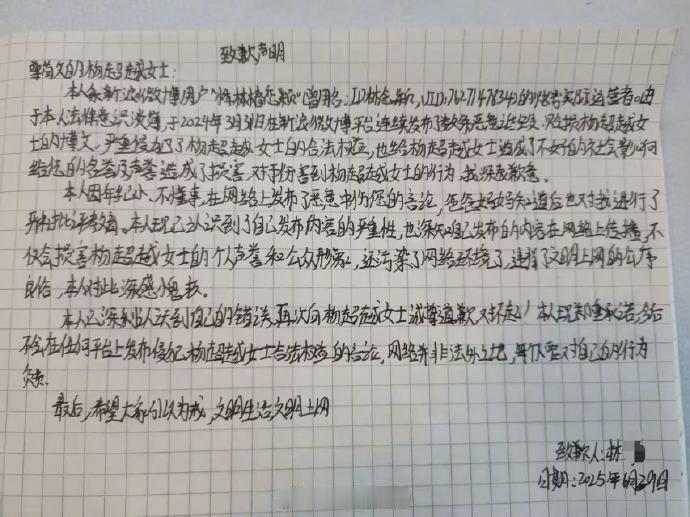 致歉声明
尊敬的杨超越女士:
本人系新浪微博用户" "(曾用名: ,UID:7627147834)的账号实际运营者。由
于本人法律意识淡薄,于2024年3月31日在新浪微博平台连续发布了 恶意 、贬损杨超越女
士的博文,严重侵犯了杨超越女士的合法权益,也给杨超越女士造成了不好的社会影响
给您的名誉及声誉造成了损害,对于伤害到杨超越女士的行为,我深表歉意。
本人因年纪小、不懂事,在网络上发布了恶意中伤您的言论,包含妈妈知道后也对我进行了
严肃批评教育。本人现已认识到了自己发布内容的严重性,也深知自己发布的内容在网络上传播,不
仅会损害杨超越女士的个人声誉和公众形象,还污染了网络环境了,违背了文明上网的公序
良俗,本人对此深感愧疚。
本人已深刻认识到自己的错误,再次向杨超越女士诚挚道歉,对不起!本人现郑重承诺,今后
不会在任何平台上发布侵犯杨超越女士合法权益的言论,网络并非法外之地,每个人要对自己的行为
负责。
最后,希望大家引以为戒,文明生活文明上网
致歉人:林
日期:2025年6月29日